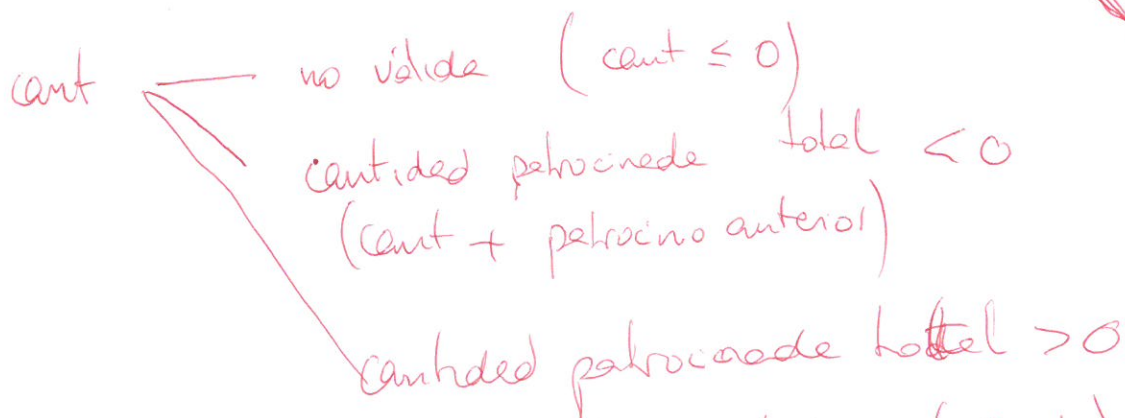 cant no válida (cant ≤ 0)
cantidad patrocinada total < 0
(cant + patrocinio anterior)
cantidad patrocinada total > 0